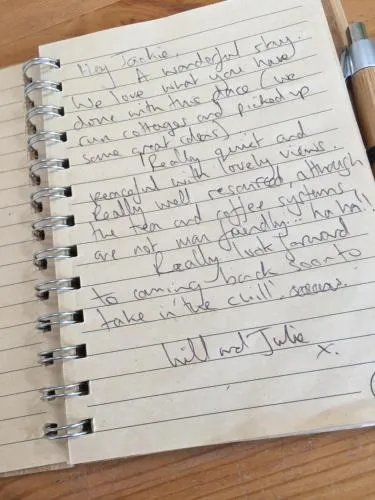 Hey Jackie,
A wonderful stay.
We love what you have
done with this place (we
run cottages and picked up
some great ideas)
Really quiet and
peaceful with lovely views.
Really well resourced, although
the tea and coffee systems
are not man friendly... ha ha!!
Really look forward
to coming back soon to
take in 'the chill'
Will and Julie
x.